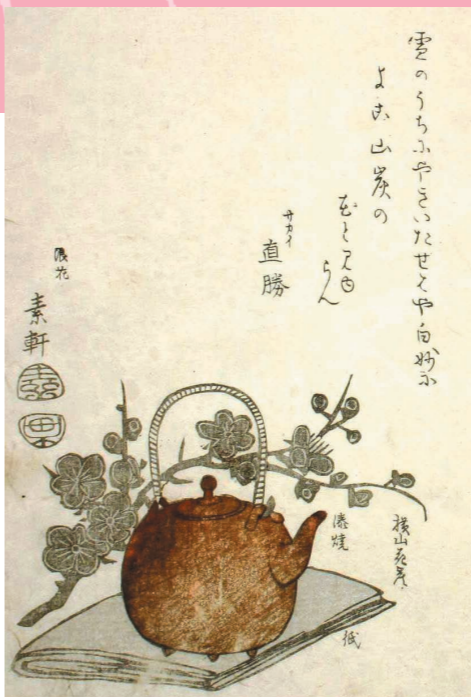 雪のうちにやきいたせはや白妙に
よこ山炭の
花と見ゆ
らん
サカイ
直勝
浪花
素軒
湊焼
横山花炭
紙